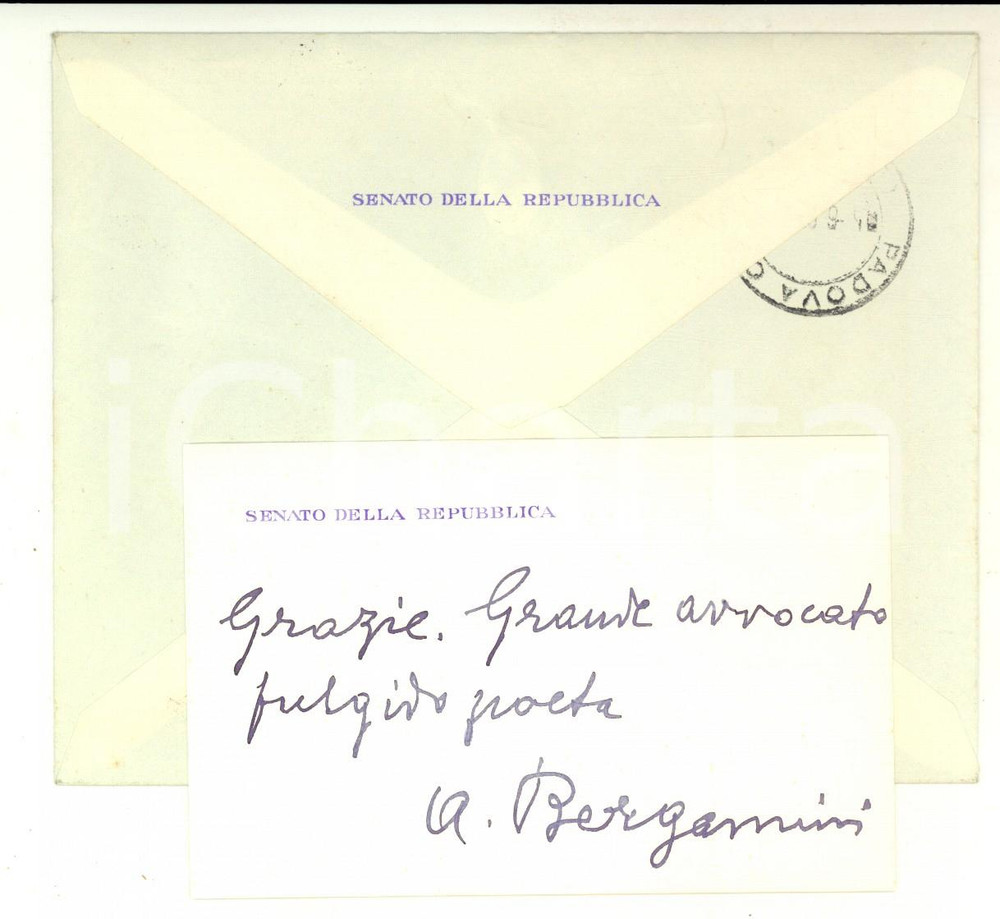 SENATO DELLA REPUBBLICA
PADOVA
iCharta
SENATO DELLA REPUBBLICA
Grazie. Grande avvocato
fulgido poeta
A. Bergamini